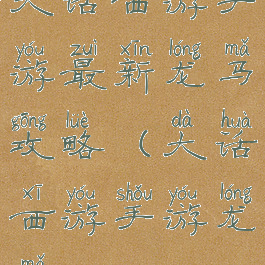 大话西游手
yóu zuì xīn lóng mǎ
游最新龙马
gōng lüè dà huà
攻略(大话
xī yóu shǒu yóu lóng
西游手游龙
mǎ